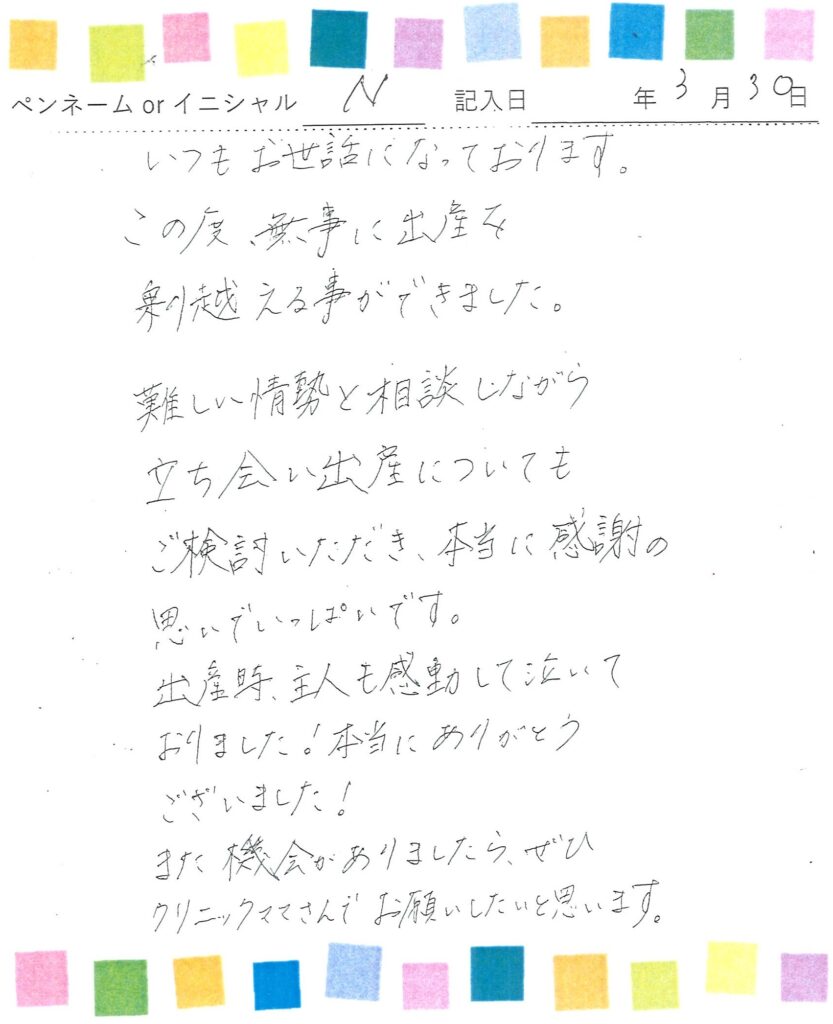 ペンネーム or イニシャル N 記入日 年 3 月 30 日
いつもお世話になっております。
この度、無事に出産を
乗り越える事ができました。
難しい情勢と相談しながら
立ち会い出産についても
ご検討いただき、本当に感謝の
思いでいっぱいです。
出産時、主人も感動して泣いて
おりました！本当にありがとう
ございました！
また機会がありましたら、ぜひ
クリニックママさんでお願いしたいと思います。